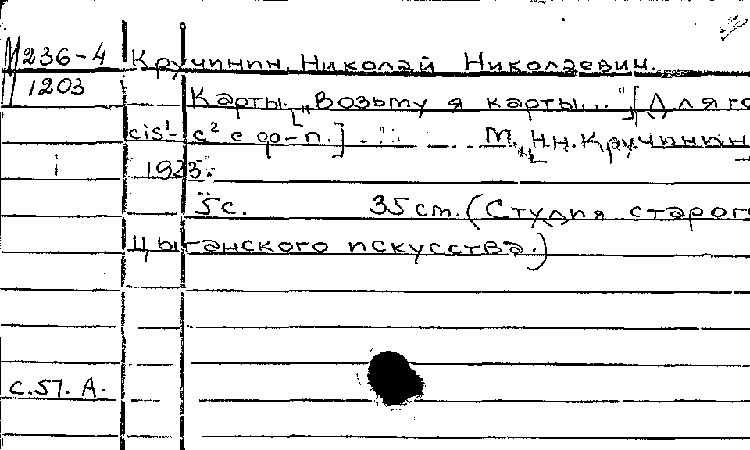 М 236-4 Кручинин, Николай Николаевич.
1203 Карты. „Возьму я карты..." [Для го
cis¹- c² с ф-п.] ... М., Н.н. Кручинин
1923.
5с. 35 cm. (Студия старог
цыганского искусства.)
с.57. А.